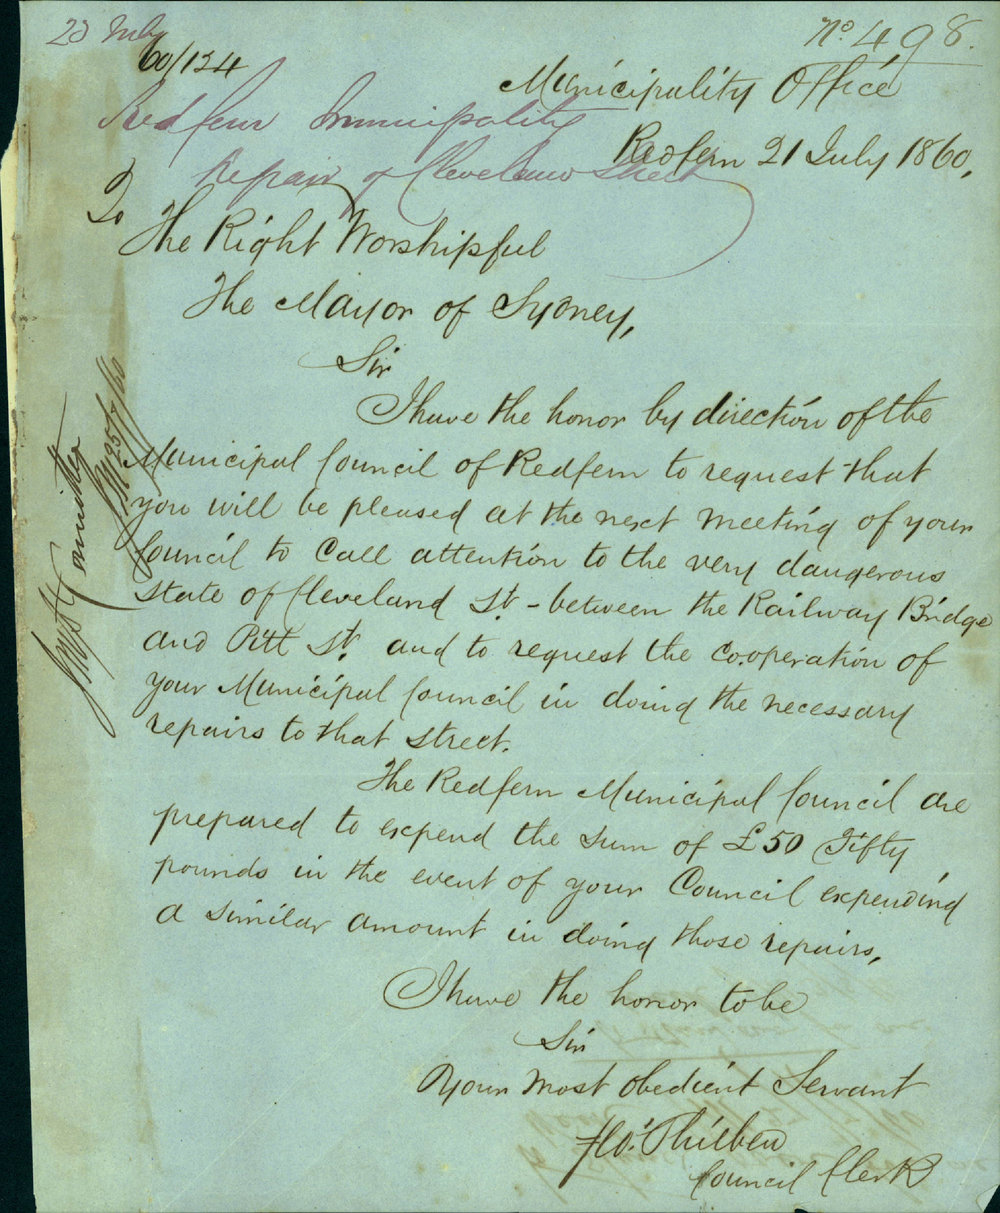 23 July
No 498.
60/124
Municipality Office
Redfern Municipality
Redfern 21 July 1860,
Repair of Cleveland Street
To
The Right Worshipful
The Mayor of Sydney,
Sir
I have the honor by direction of the
Municipal Council of Redfern to request that
you will be pleased at the next meeting of your
Council to Call attention to the very dangerous
state of Cleveland St. - between the Railway Bridge
and Pitt St. and to request the co.operation of
your Municipal Council in doing the necessary
repairs to that street.
The Redfern Municipal Council are
prepared to expend the sum of £50 Fifty
pounds in the event of your Council expending
a similar amount in doing those repairs,
I have the honor to be
Sir
Your most obedient Servant
Council Clerk
Committee
25/7/60